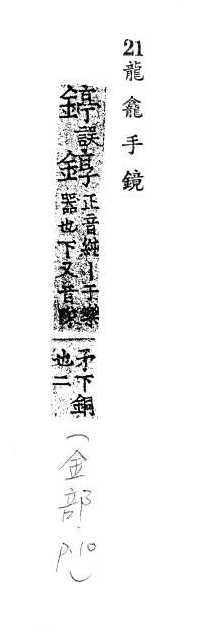 21 龍龕手鏡
誤錞
正音純丨于樂
器也下又音隊
矛下銅
也二
(金部.P.10)